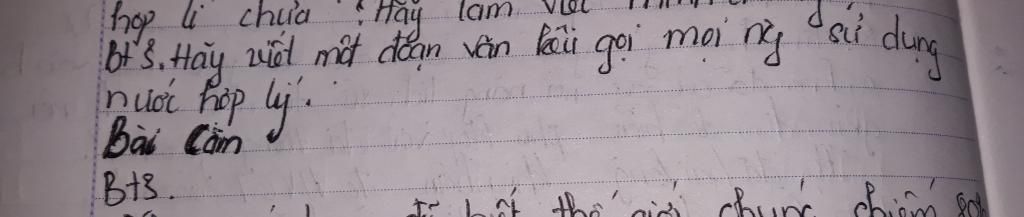 hợp lí chưa ? Hãy làm
Bt3. Hãy viết một đoạn văn kêu gọi mọi ng sử dụng
nước hợp lý.
Bài Làm
Bt3.
thế giới chúng chiếm